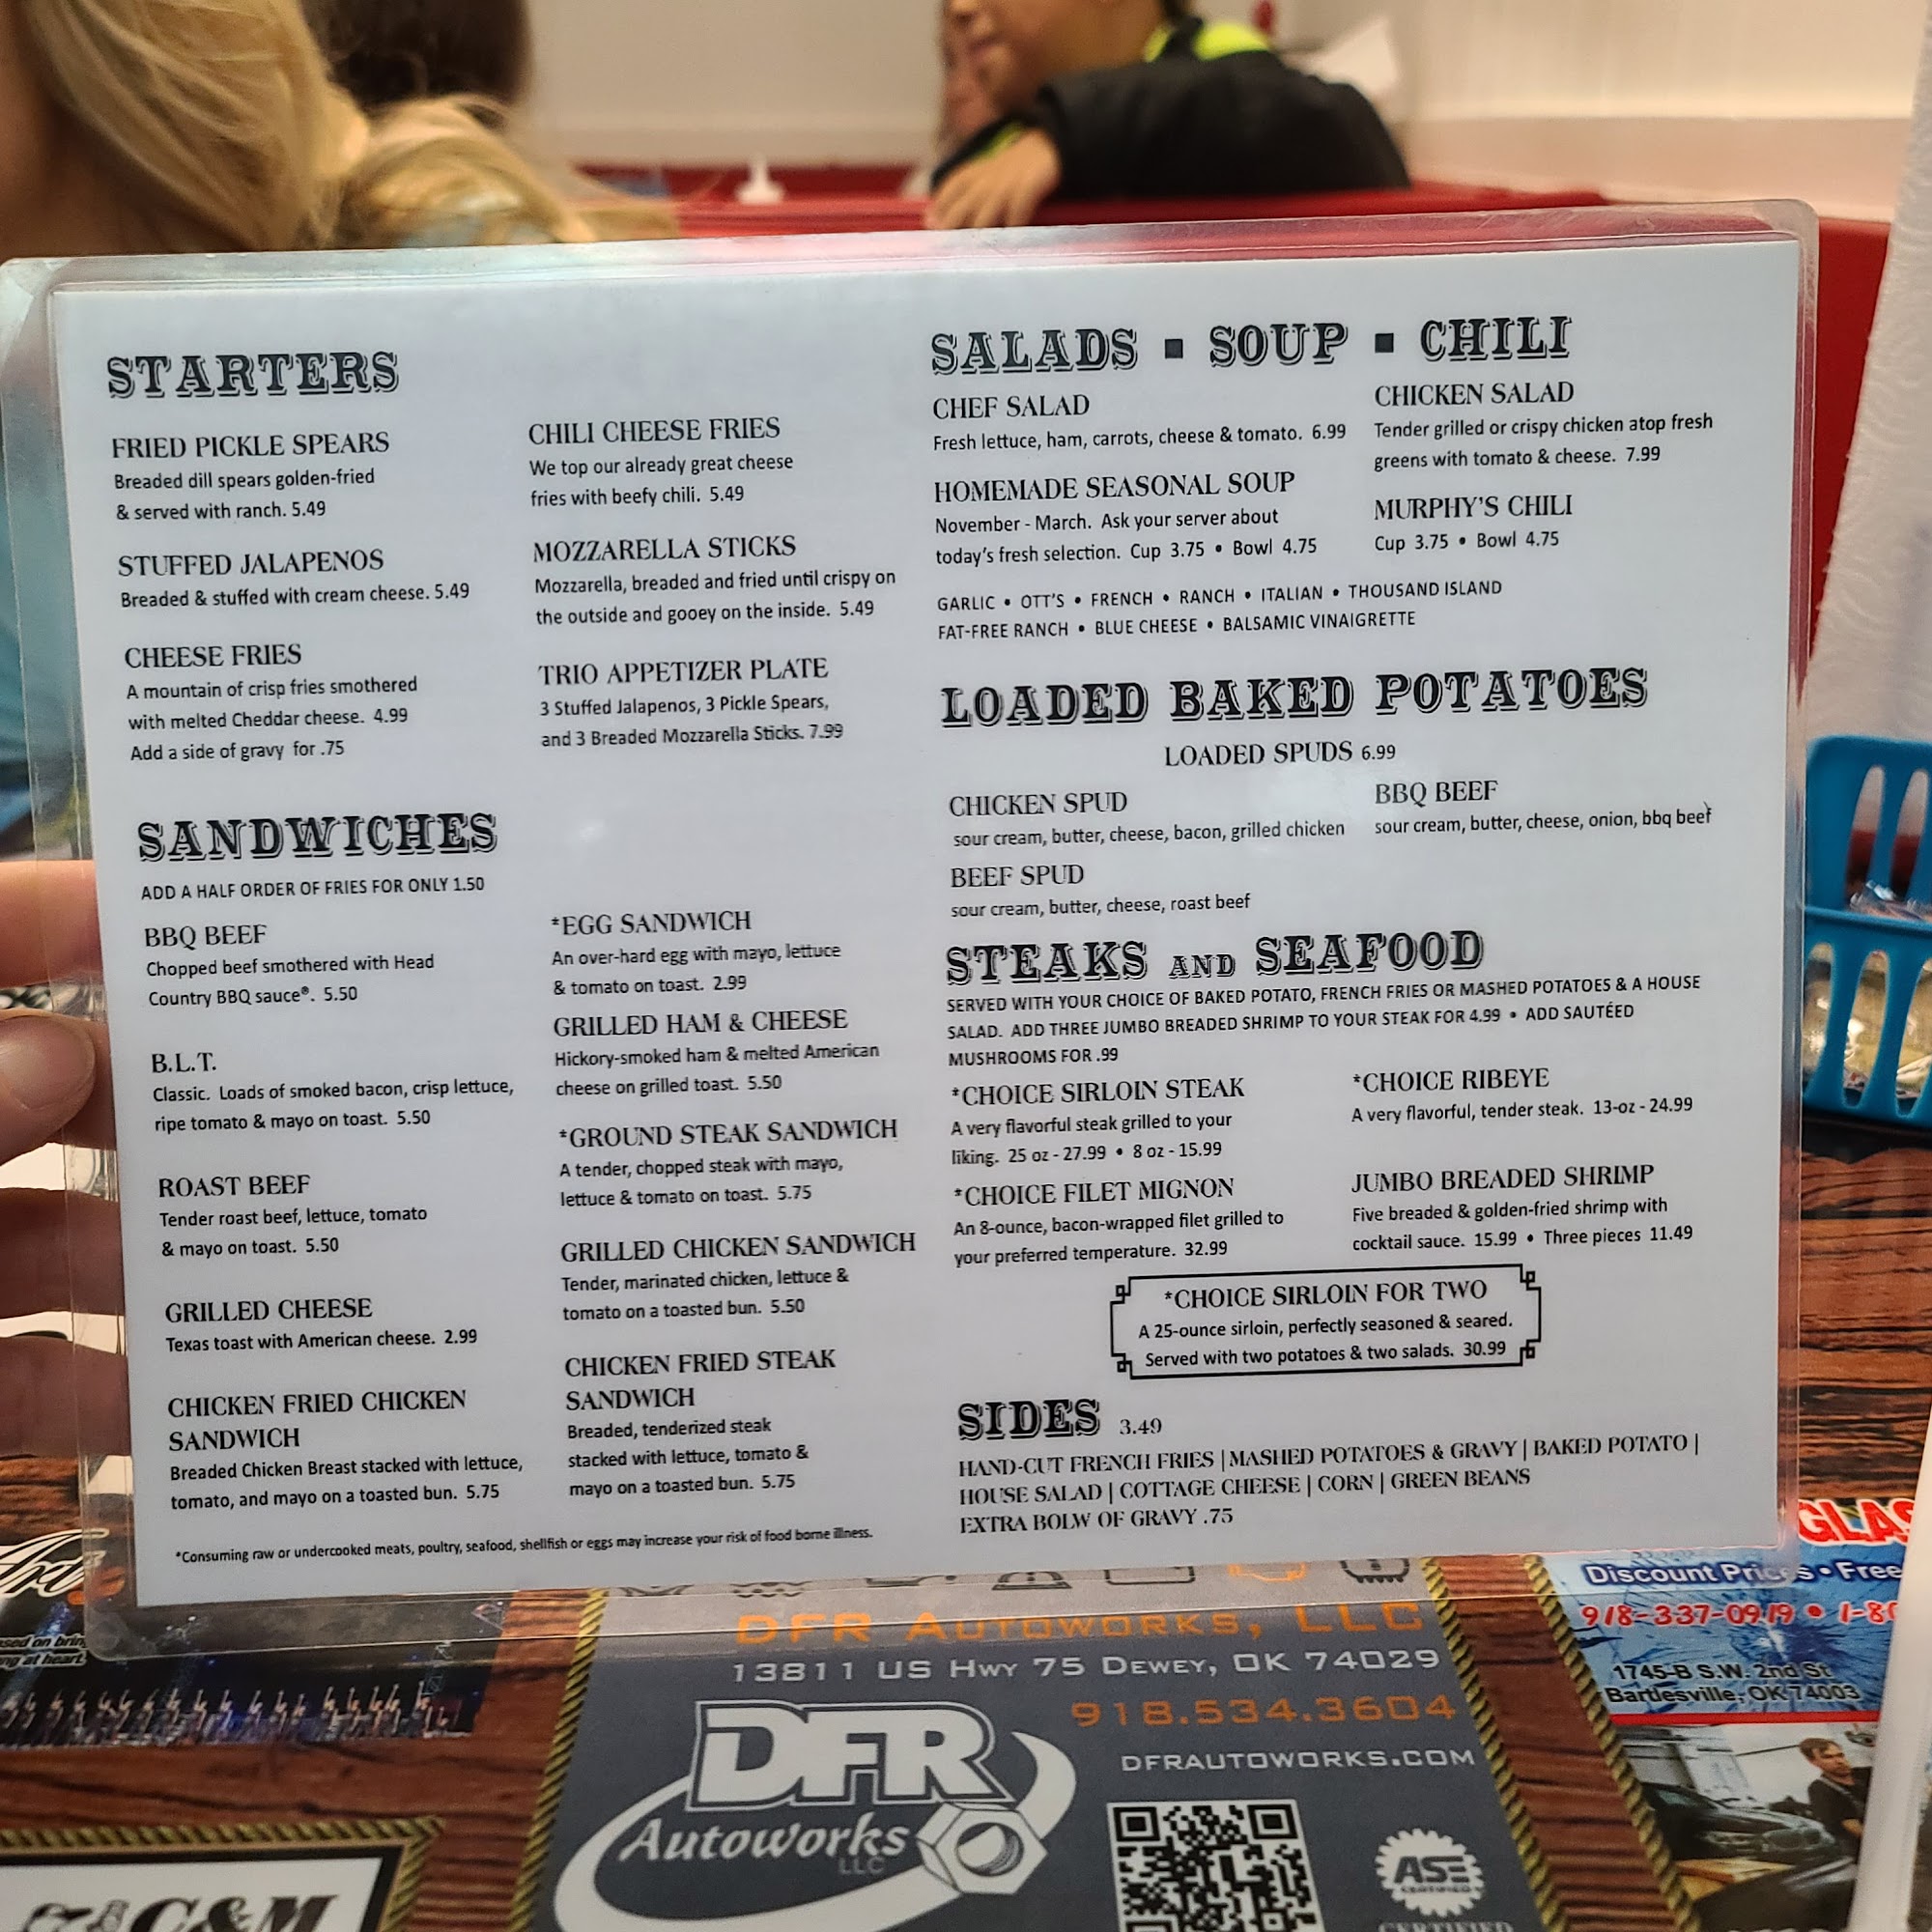 STARTERS
FRIED PICKLE SPEARS
Breaded dill spears golden-fried
& served with ranch. 5.49
STUFFED JALAPENOS
Breaded & stuffed with cream cheese. 5.49
CHEESE FRIES
A mountain of crisp fries smothered
with melted Cheddar cheese. 4.99
Add a side of gravy for .75
CHILI CHEESE FRIES
We top our already great cheese
fries with beefy chili. 5.49
MOZZARELLA STICKS
Mozzarella, breaded and fried until crispy on
the outside and gooey on the inside. 5.49
TRIO APPETIZER PLATE
3 Stuffed Jalapenos, 3 Pickle Spears,
and 3 Breaded Mozzarella Sticks. 7.99
SANDWICHES
ADD A HALF ORDER OF FRIES FOR ONLY 1.50
BBQ BEEF
Chopped beef smothered with Head
Country BBQ sauce®. 5.50
B.L.T.
Classic. Loads of smoked bacon, crisp lettuce,
ripe tomato & mayo on toast. 5.50
ROAST BEEF
Tender roast beef, lettuce, tomato
& mayo on toast. 5.50
GRILLED CHEESE
Texas toast with American cheese. 2.99
CHICKEN FRIED CHICKEN
SANDWICH
Breaded Chicken Breast stacked with lettuce,
tomato, and mayo on a toasted bun. 5.75
*EGG SANDWICH
An over-hard egg with mayo, lettuce
& tomato on toast. 2.99
GRILLED HAM & CHEESE
Hickory-smoked ham & melted American
cheese on grilled toast. 5.50
*GROUND STEAK SANDWICH
A tender, chopped steak with mayo,
lettuce & tomato on toast. 5.75
GRILLED CHICKEN SANDWICH
Tender, marinated chicken, lettuce &
tomato on a toasted bun. 5.50
CHICKEN FRIED STEAK
SANDWICH
Breaded, tenderized steak
stacked with lettuce, tomato &
mayo on a toasted bun. 5.75
*Consuming raw or undercooked meats, poultry, seafood, shellfish or eggs may increase your risk of food borne illness.
SALADS ▪ SOUP ▪ CHILI
CHEF SALAD
Fresh lettuce, ham, carrots, cheese & tomato. 6.99
HOMEMADE SEASONAL SOUP
November - March. Ask your server about
today's fresh selection. Cup 3.75 • Bowl 4.75
CHICKEN SALAD
Tender grilled or crispy chicken atop fresh
greens with tomato & cheese. 7.99
MURPHY'S CHILI
Cup 3.75 • Bowl 4.75
GARLIC • OTT'S • FRENCH • RANCH • ITALIAN • THOUSAND ISLAND
FAT-FREE RANCH • BLUE CHEESE • BALSAMIC VINAIGRETTE
LOADED BAKED POTATOES
LOADED SPUDS 6.99
CHICKEN SPUD
sour cream, butter, cheese, bacon, grilled chicken
BBQ BEEF
sour cream, butter, cheese, onion, bbq beef
BEEF SPUD
sour cream, butter, cheese, roast beef
STEAKS AND SEAFOOD
SERVED WITH YOUR CHOICE OF BAKED POTATO, FRENCH FRIES OR MASHED POTATOES & A HOUSE
SALAD. ADD THREE JUMBO BREADED SHRIMP TO YOUR STEAK FOR 4.99 • ADD SAUTÉED
MUSHROOMS FOR .99
*CHOICE SIRLOIN STEAK
A very flavorful steak grilled to your
liking. 25 oz - 27.99 • 8 oz - 15.99
*CHOICE FILET MIGNON
An 8-ounce, bacon-wrapped filet grilled to
your preferred temperature. 32.99
*CHOICE RIBEYE
A very flavorful, tender steak. 13-oz - 24.99
JUMBO BREADED SHRIMP
Five breaded & golden-fried shrimp with
cocktail sauce. 15.99 • Three pieces 11.49
*CHOICE SIRLOIN FOR TWO
A 25-ounce sirloin, perfectly seasoned & seared.
Served with two potatoes & two salads. 30.99
SIDES 3.49
HAND-CUT FRENCH FRIES | MASHED POTATOES & GRAVY | BAKED POTATO |
HOUSE SALAD | COTTAGE CHEESE | CORN | GREEN BEANS
EXTRA BOLW OF GRAVY .75
DFR AUTOWORKS, LLC
13811 US HWY 75 DEWEY, OK 74029
918.534.3604
DFRAUTOWORKS.COM
DFR
Autoworks
LLC
ASE
CERTIFIED
CERTIFIED
Discount Prices • Free
918-337-0919 • 1-80
1745-B S.W. 2nd St.
Bartlesville, OK 74003
at heart.
C&M